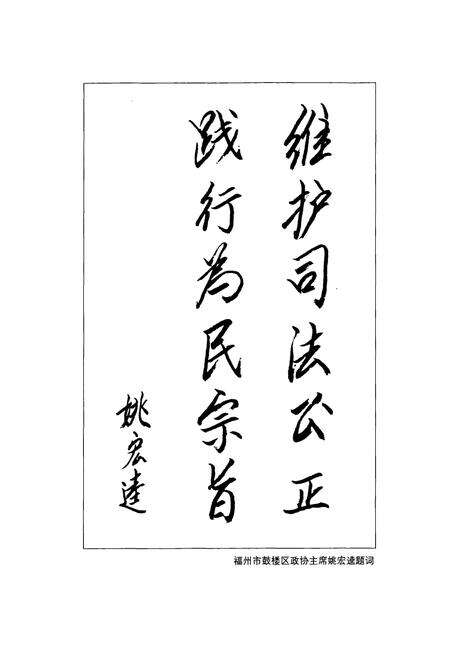 维护司法公正
践行為民宗旨
姚宏逵
福州市鼓楼区政协主席姚宏逵题词